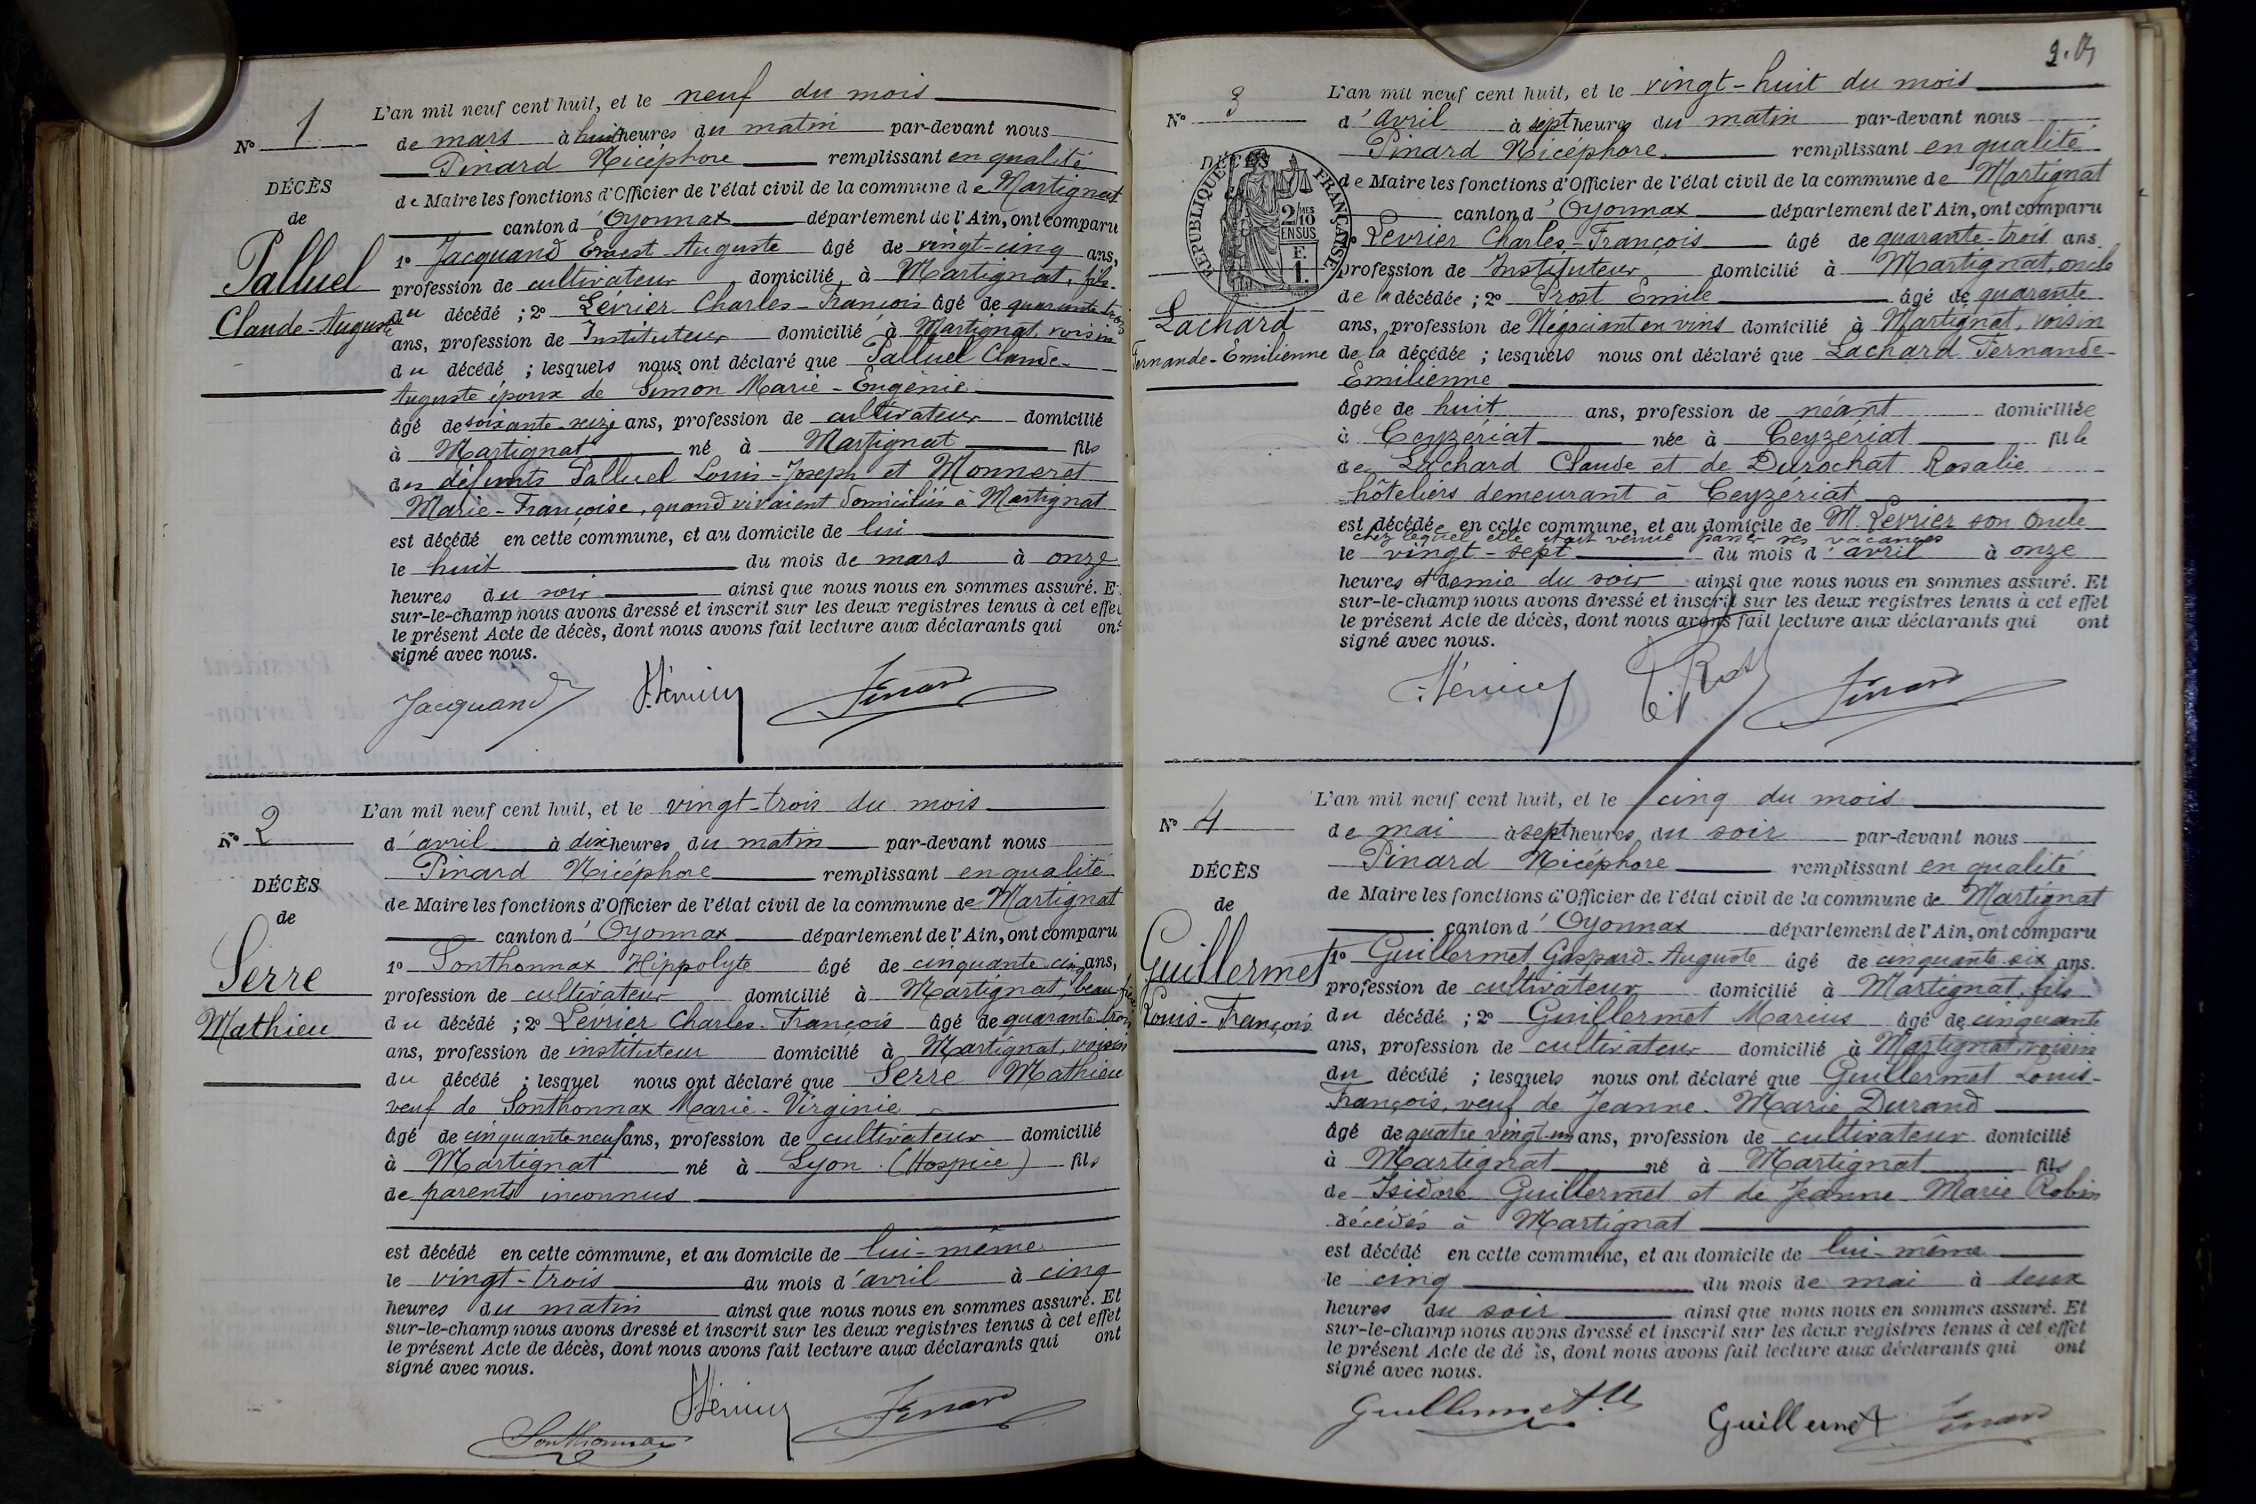 N° 1
DÉCÈS
de
Palluel
Claude-Auguste
L'an mil neuf cent huit, et le neuf du mois
de mars à huit heures du matin par-devant nous
Pinard Nicéphore remplissant en qualité
de Maire les fonctions d'Officier de l'état civil de la commune de Martignat
canton d'Oyonnax département de l'Ain, ont comparu
1° Jacquand Ernest-Auguste âgé de vingt-cinq ans,
profession de cultivateur domicilié à Martignat,
du décédé ; 2° Lévrier Charles-François âgé de quarante-trois
ans, profession de Instituteur domicilié à Martignat, voisin
du décédé ; lesquels nous ont déclaré que Palluel Claude-
Auguste époux de Simon Marie-Eugénie
âgé de soixante seize ans, profession de cultivateur domicilié
à Martignat né à Martignat fils
des défunts Palluel Louis-Joseph et Monneret
Marie-Françoise, quand vivaient domiciliés à Martignat
est décédé en cette commune, et au domicile de lui
le huit du mois de mars à onze
heures du soir ainsi que nous nous en sommes assuré. E
sur-le-champ nous avons dressé et inscrit sur les deux registres tenus à cet effet
le présent Acte de décès, dont nous avons fait lecture aux déclarants qui ont
signé avec nous.
Jacquand Lévrier Pinard
N° 2
DÉCÈS
de
Serre
Mathieu
L'an mil neuf cent huit, et le vingt-trois du mois
d'avril à dix heures du matin par-devant nous
Pinard Nicéphore remplissant en qualité
de Maire les fonctions d'Officier de l'état civil de la commune de Martignat
canton d'Oyonnax département de l'Ain, ont comparu
1° Sonthonnax Hippolyte âgé de cinquante cinq ans,
profession de cultivateur domicilié à Martignat, beau-frère
du décédé ; 2° Lévrier Charles-François âgé de quarante-trois
ans, profession de instituteur domicilié à Martignat, voisin
du décédé ; lesquel nous ont déclaré que Serre Mathieu
veuf de Sonthonnax Marie-Virginie
âgé de cinquante neuf ans, profession de cultivateur domicilié
à Martignat né à Lyon (Hospice) fils
de parents inconnus
est décédé en cette commune, et au domicile de lui-même
le vingt-trois du mois d'avril à cinq
heures du matin ainsi que nous nous en sommes assuré. Et
sur-le-champ nous avons dressé et inscrit sur les deux registres tenus à cet effet
le présent Acte de décès, dont nous avons fait lecture aux déclarants qui ont
signé avec nous.
Sonthonnax Lévrier Pinard
N° 3
DÉCÈS
RÉPUBLIQUE FRANÇAISE
2/10 MES
EN SUS
F.
1.
Lachard
Fernande-Emilienne
L'an mil neuf cent huit, et le vingt-huit du mois
d'avril à sept heures du matin par-devant nous
Pinard Nicéphore remplissant en qualité
de Maire les fonctions d'Officier de l'état civil de la commune de Martignat
canton d'Oyonnax département de l'Ain, ont comparu
1° Lévrier Charles-François âgé de quarante-trois ans
profession de Instituteur domicilié à Martignat, oncle
de la décédée ; 2° Prost Emile âgé de quarante
ans, profession de Négociant en vins domicilié à Martignat, voisin
de la décédée ; lesquels nous ont déclaré que Lachard Fernande-
Emilienne
âgée de huit ans, profession de néant domiciliée
à Ceyzériat née à Ceyzériat fille
de Lachard Claude et de Durochat Rosalie
hôteliers demeurant à Ceyzériat
est décédée en cette commune, et au domicile de M. Levrier son oncle
chez lequel elle était venue passer ses vacances
le vingt-sept du mois d'avril à onze
heures et demie du soir ainsi que nous nous en sommes assuré. Et
sur-le-champ nous avons dressé et inscrit sur les deux registres tenus à cet effet
le présent Acte de décès, dont nous avons fait lecture aux déclarants qui ont
signé avec nous.
Lévrier E. Prost Pinard
N° 4
DÉCÈS
de
Guillermet
Louis-François
L'an mil neuf cent huit, et le cinq du mois
de mai à sept heures du soir par-devant nous
Pinard Nicéphore remplissant en qualité
de Maire les fonctions d'Officier de l'état civil de la commune de Martignat
canton d'Oyonnax département de l'Ain, ont comparu
1° Guillermet Gaspard-Auguste âgé de cinquante-six ans.
profession de cultivateur domicilié à Martignat, fils
du décédé ; 2° Guillermet Marius âgé de cinquante
ans, profession de cultivateur domicilié à Martignat, voisin
du décédé ; lesquels nous ont déclaré que Guillermet Louis-
François, veuf de Jeanne-Marie Durand
âgé de quatre vingt-un ans, profession de cultivateur domicilié
à Martignat né à Martignat fils
de Isidore Guillermet et de Jeanne Marie Robin
décédés à Martignat
est décédé en cette commune, et au domicile de lui-même
le cinq du mois de mai à deux
heures du soir ainsi que nous nous en sommes assuré. Et
sur-le-champ nous avons dressé et inscrit sur les deux registres tenus à cet effet
le présent Acte de dé s, dont nous avons fait lecture aux déclarants qui ont
signé avec nous.
Guillermet Guillermet Pinard